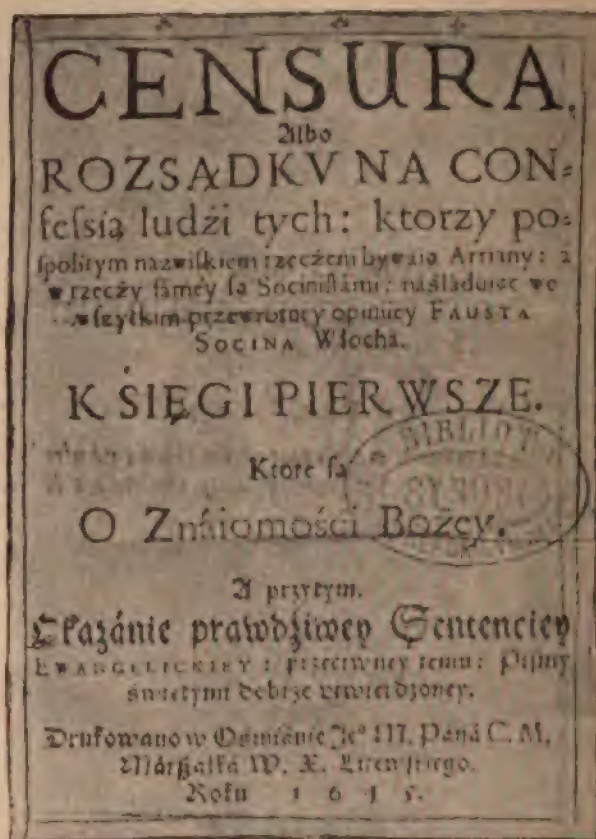 CENSURA,
Albo
ROZSĄDKV NA CON⸗
feſsią ludźi tych: ktorzy po⸗
ſpolitym nazwiſkiem rzeczeni bywáią Arriány: á
w rzeczy ſámey ſą Sociniſtámi: náśláduiąc we
wſzytkim przewrotney opiniiey FAUSTA
SOCINA Włochá.
KSIĘGI PIERWSZE.
Ktore ſą
O Znáiomośći Bożey.
A przytym.
Okazánie prawdźiwey Sentenciey
EWANGELICKIEY: przećiwney temu: Piſmy
świętymi dobrze vtwierdzoney.
Drukowano w Oſmiánie Je⁰ M. Páná C. M.
Márßałká W. X. Litewſkiego.
Roku 1 6 1 5.
BIBLIOT